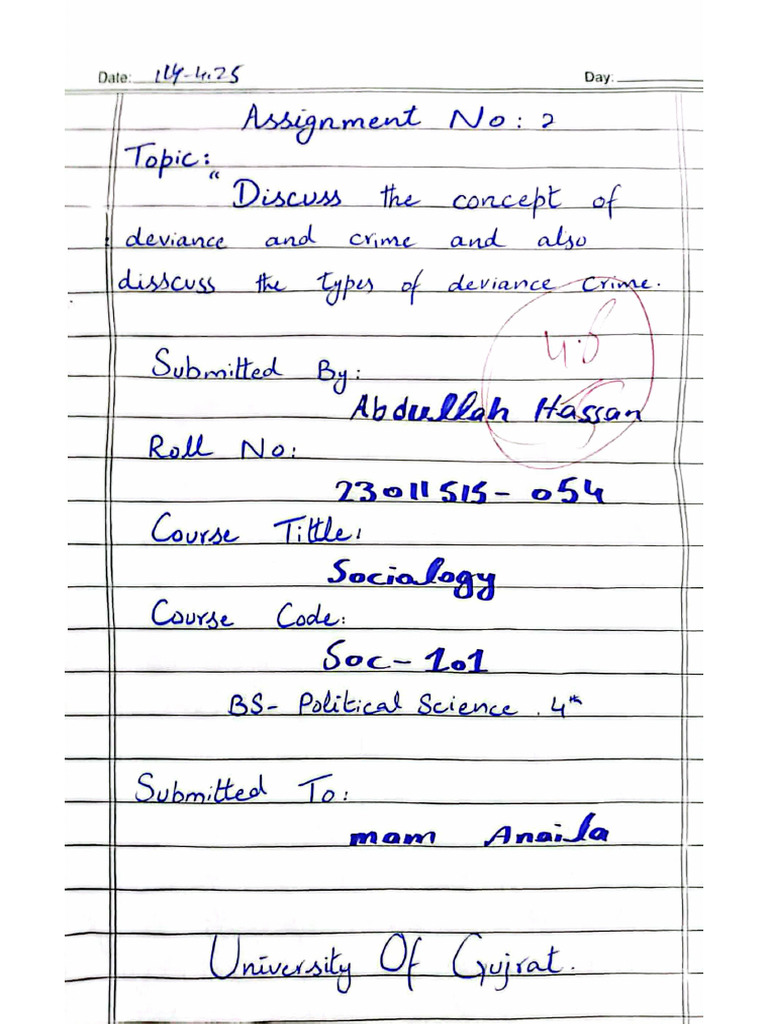 Date: 14-4.25 Day:
Assignment No: 2
Topic:
"Discuss the concept of
deviance and crime and also
disscuss the types of deviance crime.
4.5
Submitted By:
Abdullah Hassan
Roll No:
23011515-054
Course Tittle:
Socialogy
Course Code:
Soc-101
BS- Political Science . 4th
Submitted To:
mam Anaila
University Of Gujrat.